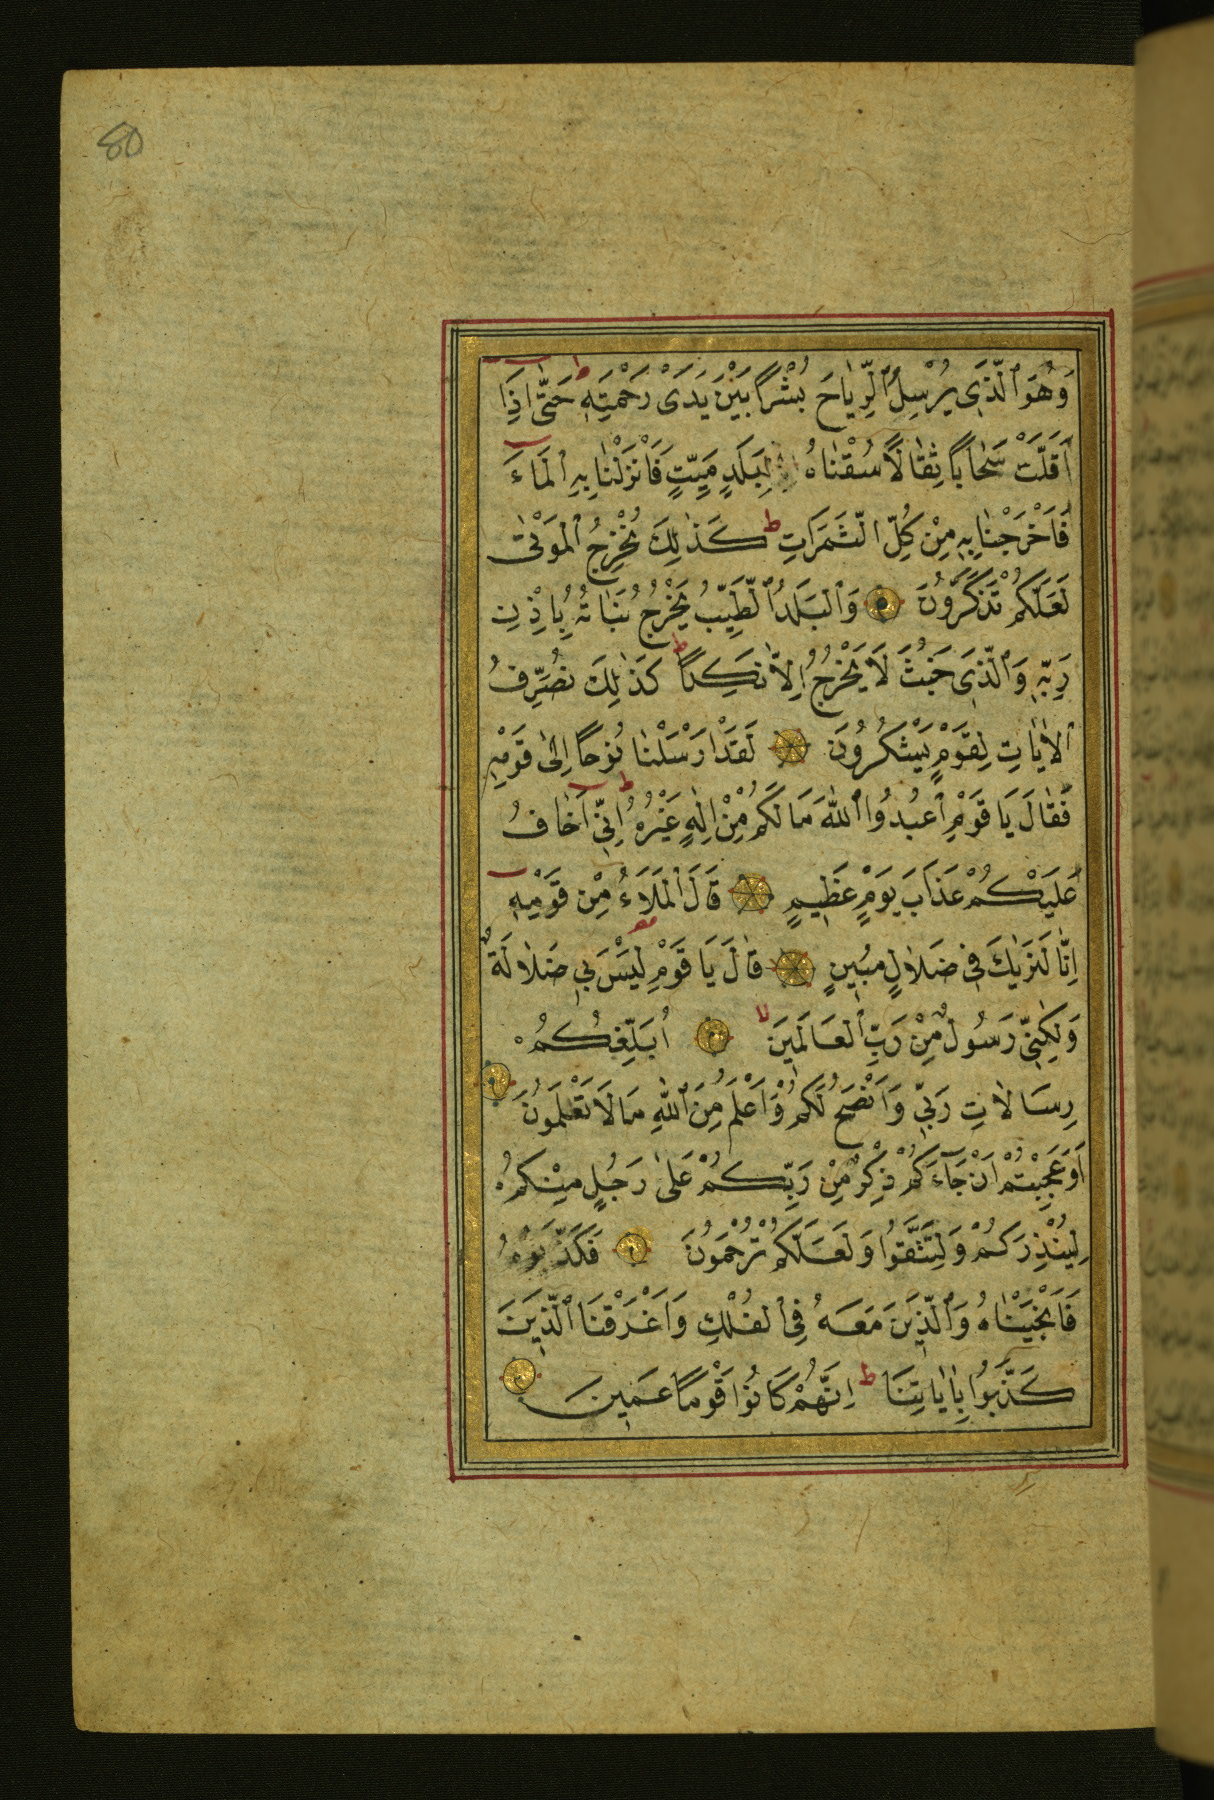 80
وَهُوَ ٱلَّذِى يُرْسِلُ ٱلرِّيَاحَ بُشْرًا بَيْنَ يَدَىْ رَحْمَتِهِ ط حَتّٰى اِذَا
اَقَلَّتْ سَحَابًا ثِقَالًا سُقْنَاهُ لِبَلَدٍ مَيِّتٍ فَاَنْزَلْنَا بِهِ ٱلْمَاءَ
فَاَخْرَجْنَا بِهِ مِنْ كُلِّ ٱلثَّمَرَاتِ ط كَذٰلِكَ نُخْرِجُ ٱلْمَوْتٰى
لَعَلَّكُمْ تَذَكَّرُونَ وَٱلْبَلَدُ ٱلطَّيِّبُ يَخْرُجُ نَبَاتُهُ بِاِذْنِ
رَبِّهِ وَٱلَّذِى خَبُثَ لَا يَخْرُجُ اِلَّا نَكِدًا ط كَذٰلِكَ نُصَرِّفُ
ٱلْاٰيَاتِ لِقَوْمٍ يَشْكُرُونَ لَقَدْ اَرْسَلْنَا نُوحًا اِلٰى قَوْمِهِ
فَقَالَ يَا قَوْمِ ٱعْبُدُوا ٱللّٰهَ مَا لَكُمْ مِنْ اِلٰهٍ غَيْرُهُ ط اِنِّى اَخَافُ
عَلَيْكُمْ عَذَابَ يَوْمٍ عَظِيمٍ قَالَ ٱلْمَلَاُ مِنْ قَوْمِهِ
اِنَّا لَنَرٰيكَ فِى ضَلَالٍ مُبِينٍ قَالَ يَا قَوْمِ لَيْسَ بِى ضَلَالَةٌ
وَلٰكِنِّى رَسُولٌ مِنْ رَبِّ ٱلْعَالَمِينَ لا اُبَلِّغُكُمْ
رِسَالَاتِ رَبِّى وَاَنْصَحُ لَكُمْ وَاَعْلَمُ مِنَ ٱللّٰهِ مَا لَا تَعْلَمُونَ
اَوَعَجِبْتُمْ اَنْ جَآءَكُمْ ذِكْرٌ مِنْ رَبِّكُمْ عَلٰى رَجُلٍ مِنْكُمْ
لِيُنْذِرَكُمْ وَلِتَتَّقُوا وَلَعَلَّكُمْ تُرْحَمُونَ فَكَذَّبُوهُ
فَاَنْجَيْنَاهُ وَٱلَّذِينَ مَعَهُ فِى ٱلْفُلْكِ وَاَغْرَقْنَا ٱلَّذِينَ
كَذَّبُوا بِاٰيَاتِنَا ط اِنَّهُمْ كَانُوا قَوْمًا عَمِينَ